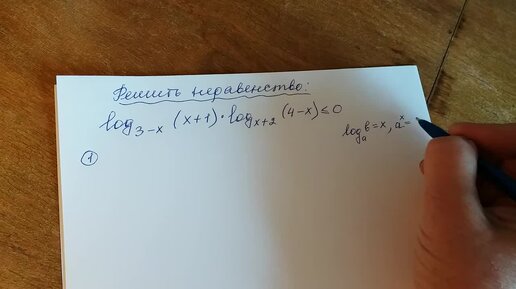 Решить неравенство:
log₃₋ₓ (x+1) · logₓ₊₂ (4-x) ≤ 0
logₐ b = x, aˣ =
1